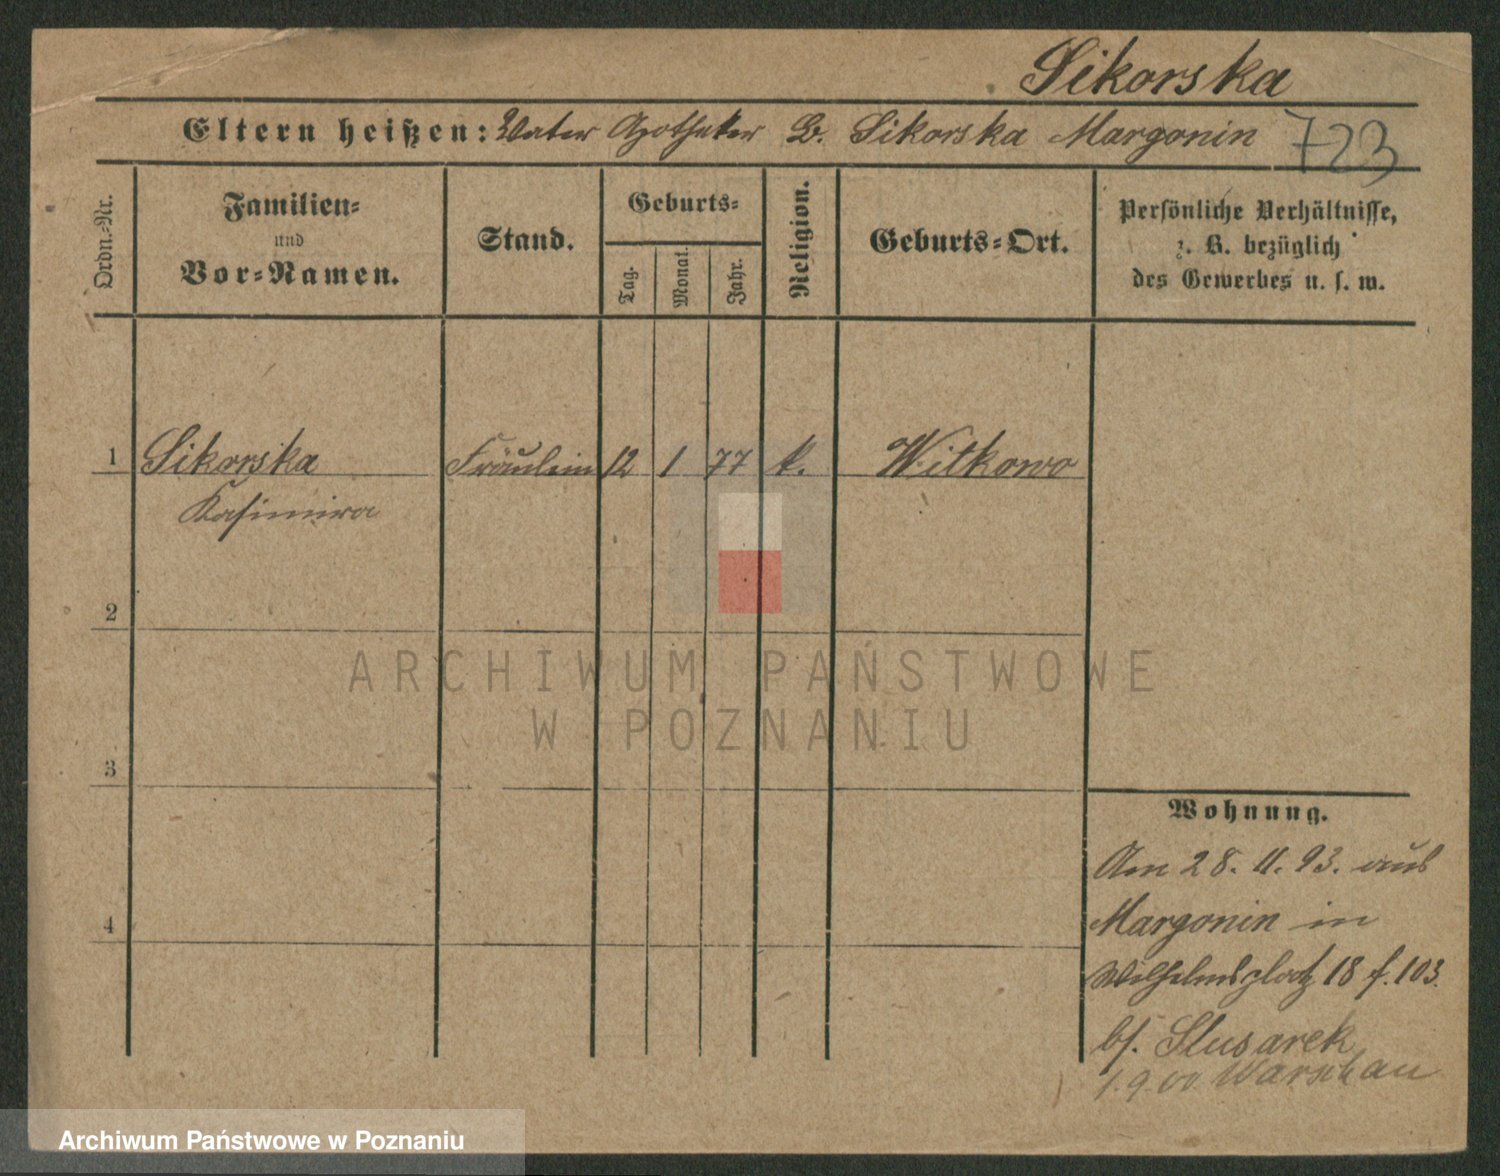 Sikorska
Eltern heißen: Vater Apotheker B. Sikorska Margonin 723
Ordn.-Nr.
Familien-
und
Vor-Namen.
Stand.
Geburts-
Tag.
Monat.
Jahr.
Religion.
Geburts-Ort.
Persönliche Verhältnisse,
z. B. bezüglich
des Gewerbes u. s. w.
1 Sikorska Fräulein 12 1 77 k. Witkowo
Kasimira
2
ARCHIWUM PAŃSTWOWE
W POZNANIU
3
Wohnung.
Am 28. 11. 93. aus
4 Margonin in
Wilhelmsplatz 18 f. 103.
bf. Slusarek
1.9.00 Warschau
Archiwum Państwowe w Poznaniu